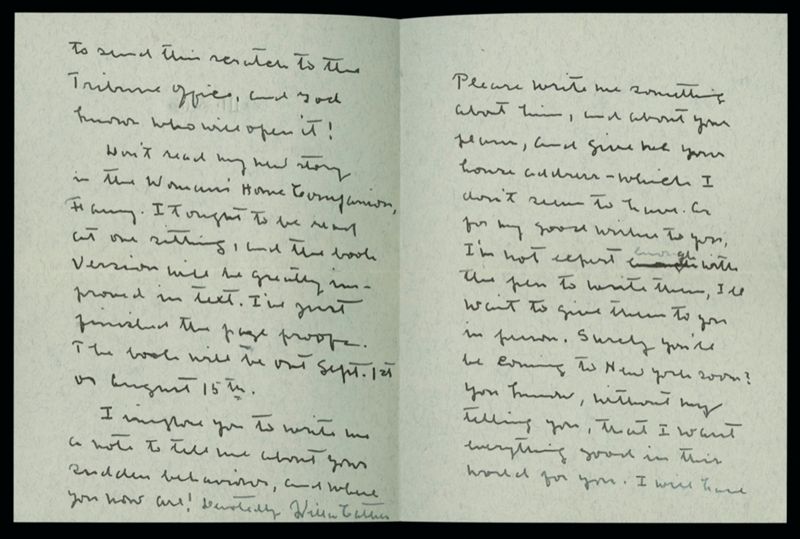 to send this scratch to the
Tribune office, and God
knows who will open it!
Don't read my new story
in the Woman's Home Companion,
Fanny. It ought to be read
at one sitting, and the book
version will be greatly im-
proved in text. I've just
finished the page proofs.
The book will be out Sept. 1st
or August 15th.
I implore you to write me
a note to tell me about your
sudden behaviour, and where
you now are! Devotedly Willa Cather
Please write me something
about him, and about your
plans, and give me your
house address - which I
don't seem to have. As
for my good wishes to you,
I'm not expert enough with
the pen to write them, I'll
want to give them to you
in person. Surely you'll
be coming to New York soon?
You know, without my
telling you, that I want
everything good in this
world for you. I will have